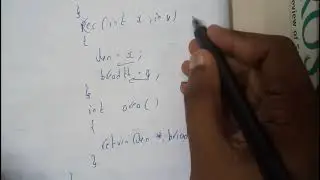 }
Rec (int x, int y)
{
len = x;
breadth = y;
}
int area ( )
{
return (len * bread
}
}
review of